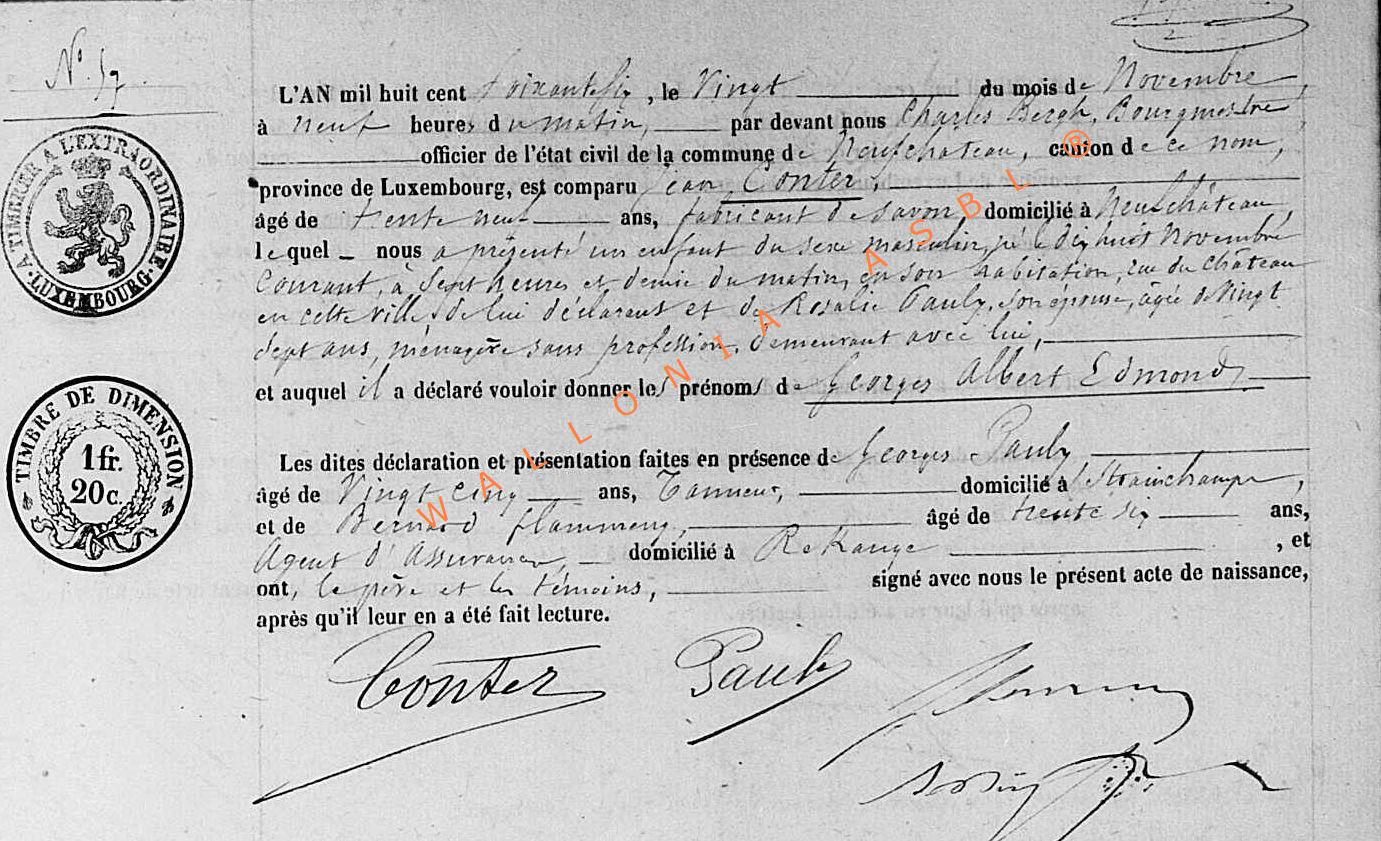 N° 57
L'AN mil huit cent soixante six, le Vingt du mois de Novembre
à neuf heures du matin, par devant nous Charles Bergh, Bourgmestre
officier de l'état civil de la commune de Neufchateau, canton de ce nom,
province de Luxembourg, est comparu Jean Conter,
âgé de trente neuf ans, fabricant de savon, domicilié à Neufchâteau,
lequel nous a présenté un enfant du sexe masculin, né le dix huit Novembre
Courant, à Sept heures et demie du matin, en son habitation, rue du Château
en cette ville, de lui déclarant et de Rosalie Pauly, son épouse, âgée de Vingt
sept ans, ménagère sans profession, demeurant avec lui,
et auquel il a déclaré vouloir donner les prénoms de Georges Albert Edmond
Les dites déclaration et présentation faites en présence de Georges Pauly
âgé de Vingt cinq ans, Tanneur, domicilié à Strainchamps,
et de Bernard Flammeng, âgé de trente six ans,
Agent d'Assurances, domicilié à Rekange, et
ont, le père et les témoins, signé avec nous le présent acte de naissance,
après qu'il leur en a été fait lecture.
Conter Pauly
A TIMBRER A L'EXTRAORDINAIRE.
LUXEMBOURG
TIMBRE DE DIMENSION
1 fr.
20 c.
WALLONIA ASBL ®